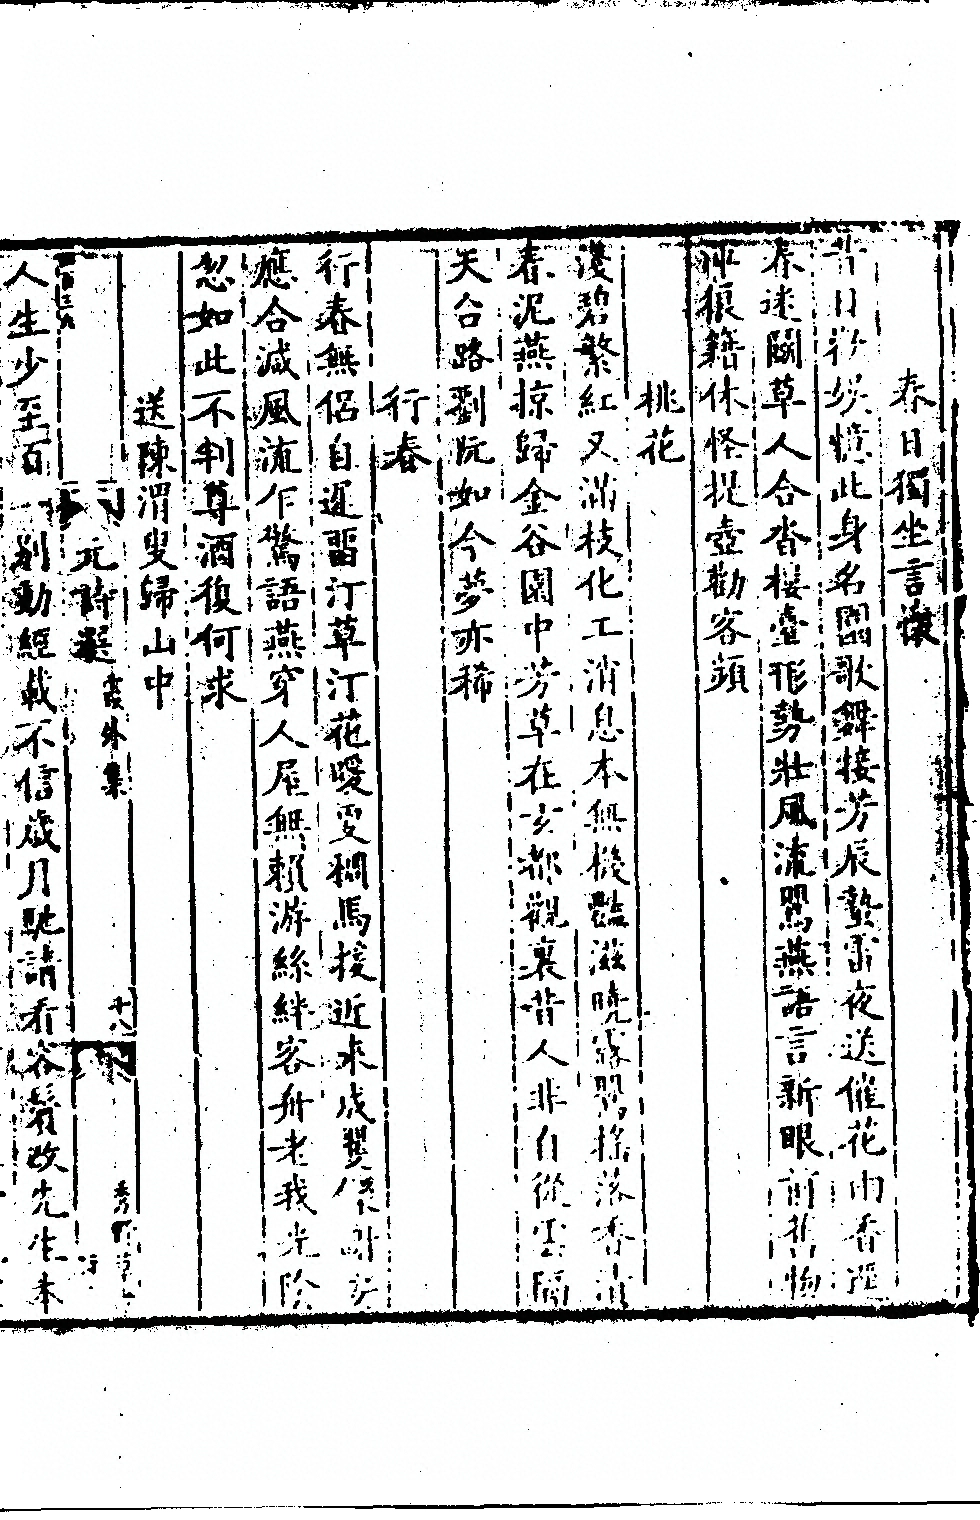 春日獨坐言懷
昔日歡娛憶此身名園歌舞接芳辰蟄雷夜送催花雨香逕
春迷鬬草人合沓樓臺形勢壯風流鶯燕語言新眼前舊物
狼籍休怪提壺勸客頻
桃花
淺碧繁紅又滿枝化工消息本無機豔滋曉露開搖落香
春泥燕掠歸金谷園中芳草在玄都觀裏昔人非自從雲隔
天台路劉阮如今夢亦稀
行春
行春無侶自遲留汀草汀花暖更稠馬援近來成
應合減風流乍驚語燕穿人屋無賴游絲絆客舟老我光陰
忽如此不判尊酒復何求
送陳渭叟歸山中
元詩選 霞外集 十八 秀野草
人生少至百 動經載不信歲月馳請看容鬢改先生本